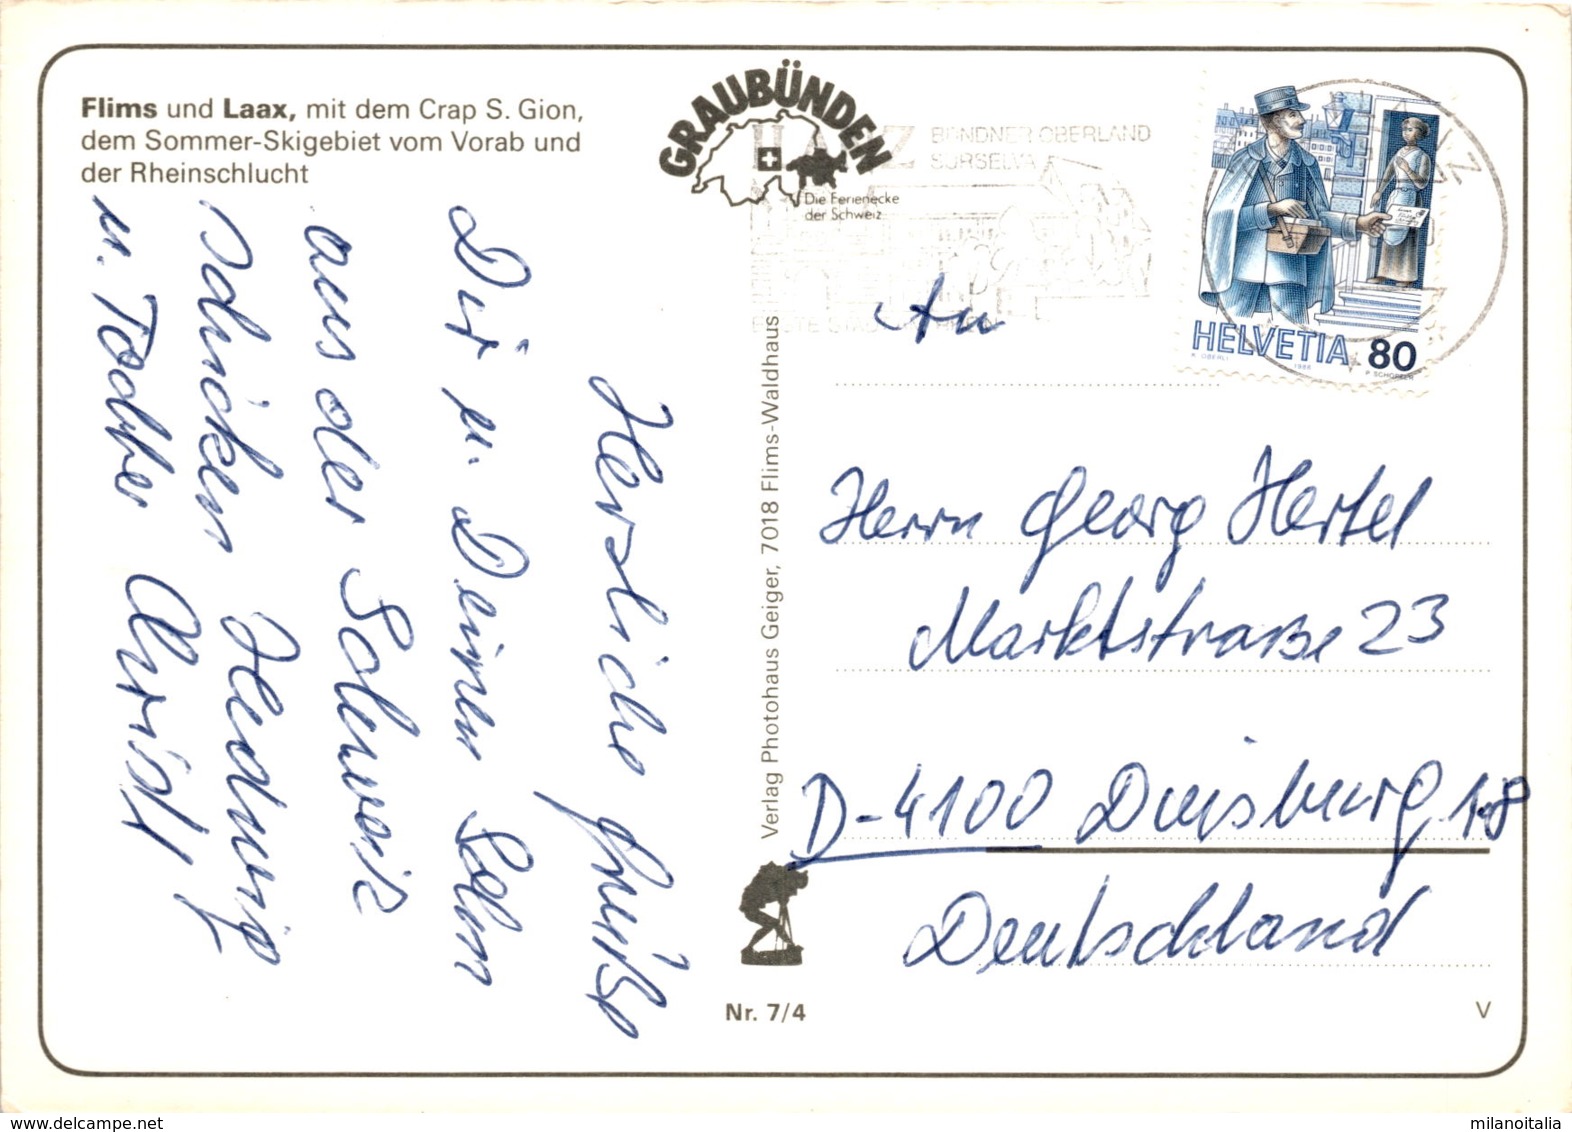 Flims und Laax, mit dem Crap S. Gion,
dem Sommer-Skigebiet vom Vorab und
der Rheinschlucht
GRAUBÜNDEN
Die Ferienecke
der Schweiz
ILANZ BÜNDNER OBERLAND
SURSELVA
ERSTE STADT AM RHEIN
HELVETIA 80
K. OBERLI 1986 P. SCHOPFER
Herzliche Grüße
Dir u. Deinem Sohn
aus der Schweiz
schicken Hedwig
u. Tochter Christl
Verlag Photohaus Geiger, 7018 Flims-Waldhaus
An
Herrn Georg Hertel
Marktstraße 23
D-4100 Duisburg 18
Deutschland
Nr. 7/4
V
milanoitalia